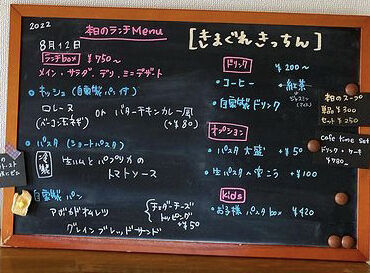 2022
8月12日
本日のランチMenu
ランチbox ¥750〜
メイン・サラダ、デリ、ミニデザート
キッシュ(自家製パン付)
ロレーヌ
(ベーコン玉ネギ)
or バターチキンカレー風
(+¥80)
パスタ(ショートパスタ)
冷製
生ハムとパプリカの
トマトソース
自家製パン
アボカドオムレツ
グレインブレッドサンド
チェダーチーズ
トッピング
+50
[きまぐれきっちん]
ドリンク ¥200〜
・コーヒー ・紅茶
・自家製ドリンク
オプション
・パスタ大盛 +¥50
+¥100
Kids
・お子様パスタbox ¥420
本日のスープ
単品¥300
セット¥250
cafe time set
ドリンク・ケーキ
¥780